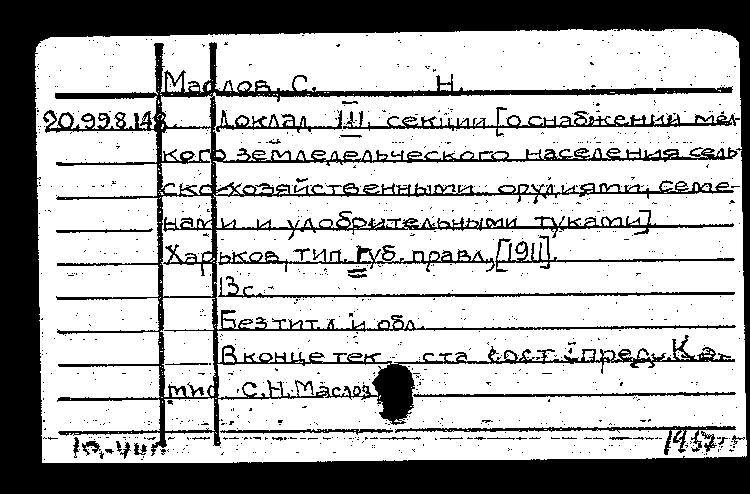 Маслов, С. Н.
20.998.148. Доклад III. секции [о снабжении мел-
кого земледельческого населения сель-
ско-хозяйственными орудиями, семе-
нами и удобрительными туками]
Харьков, тип. Губ. правл., [1911].
13 с.
Без тит. л. и обл.
В конце тек ста сост.: пред. Ко-
мис С.Н. Маслов